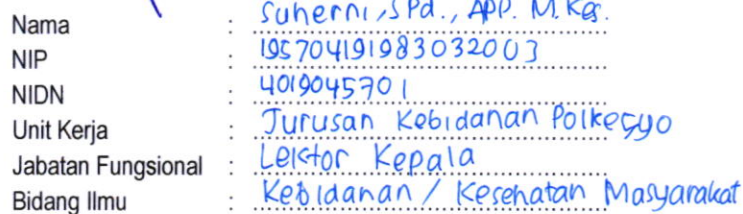 Nama : Suherni, S Pd., APP. M. Kes.
NIP : 195704191983032003
NIDN : 4019045701
Unit Kerja : Jurusan Kebidanan Polkesyo
Jabatan Fungsional : Lektor Kepala
Bidang Ilmu : Kebidanan / Kesehatan Masyarakat